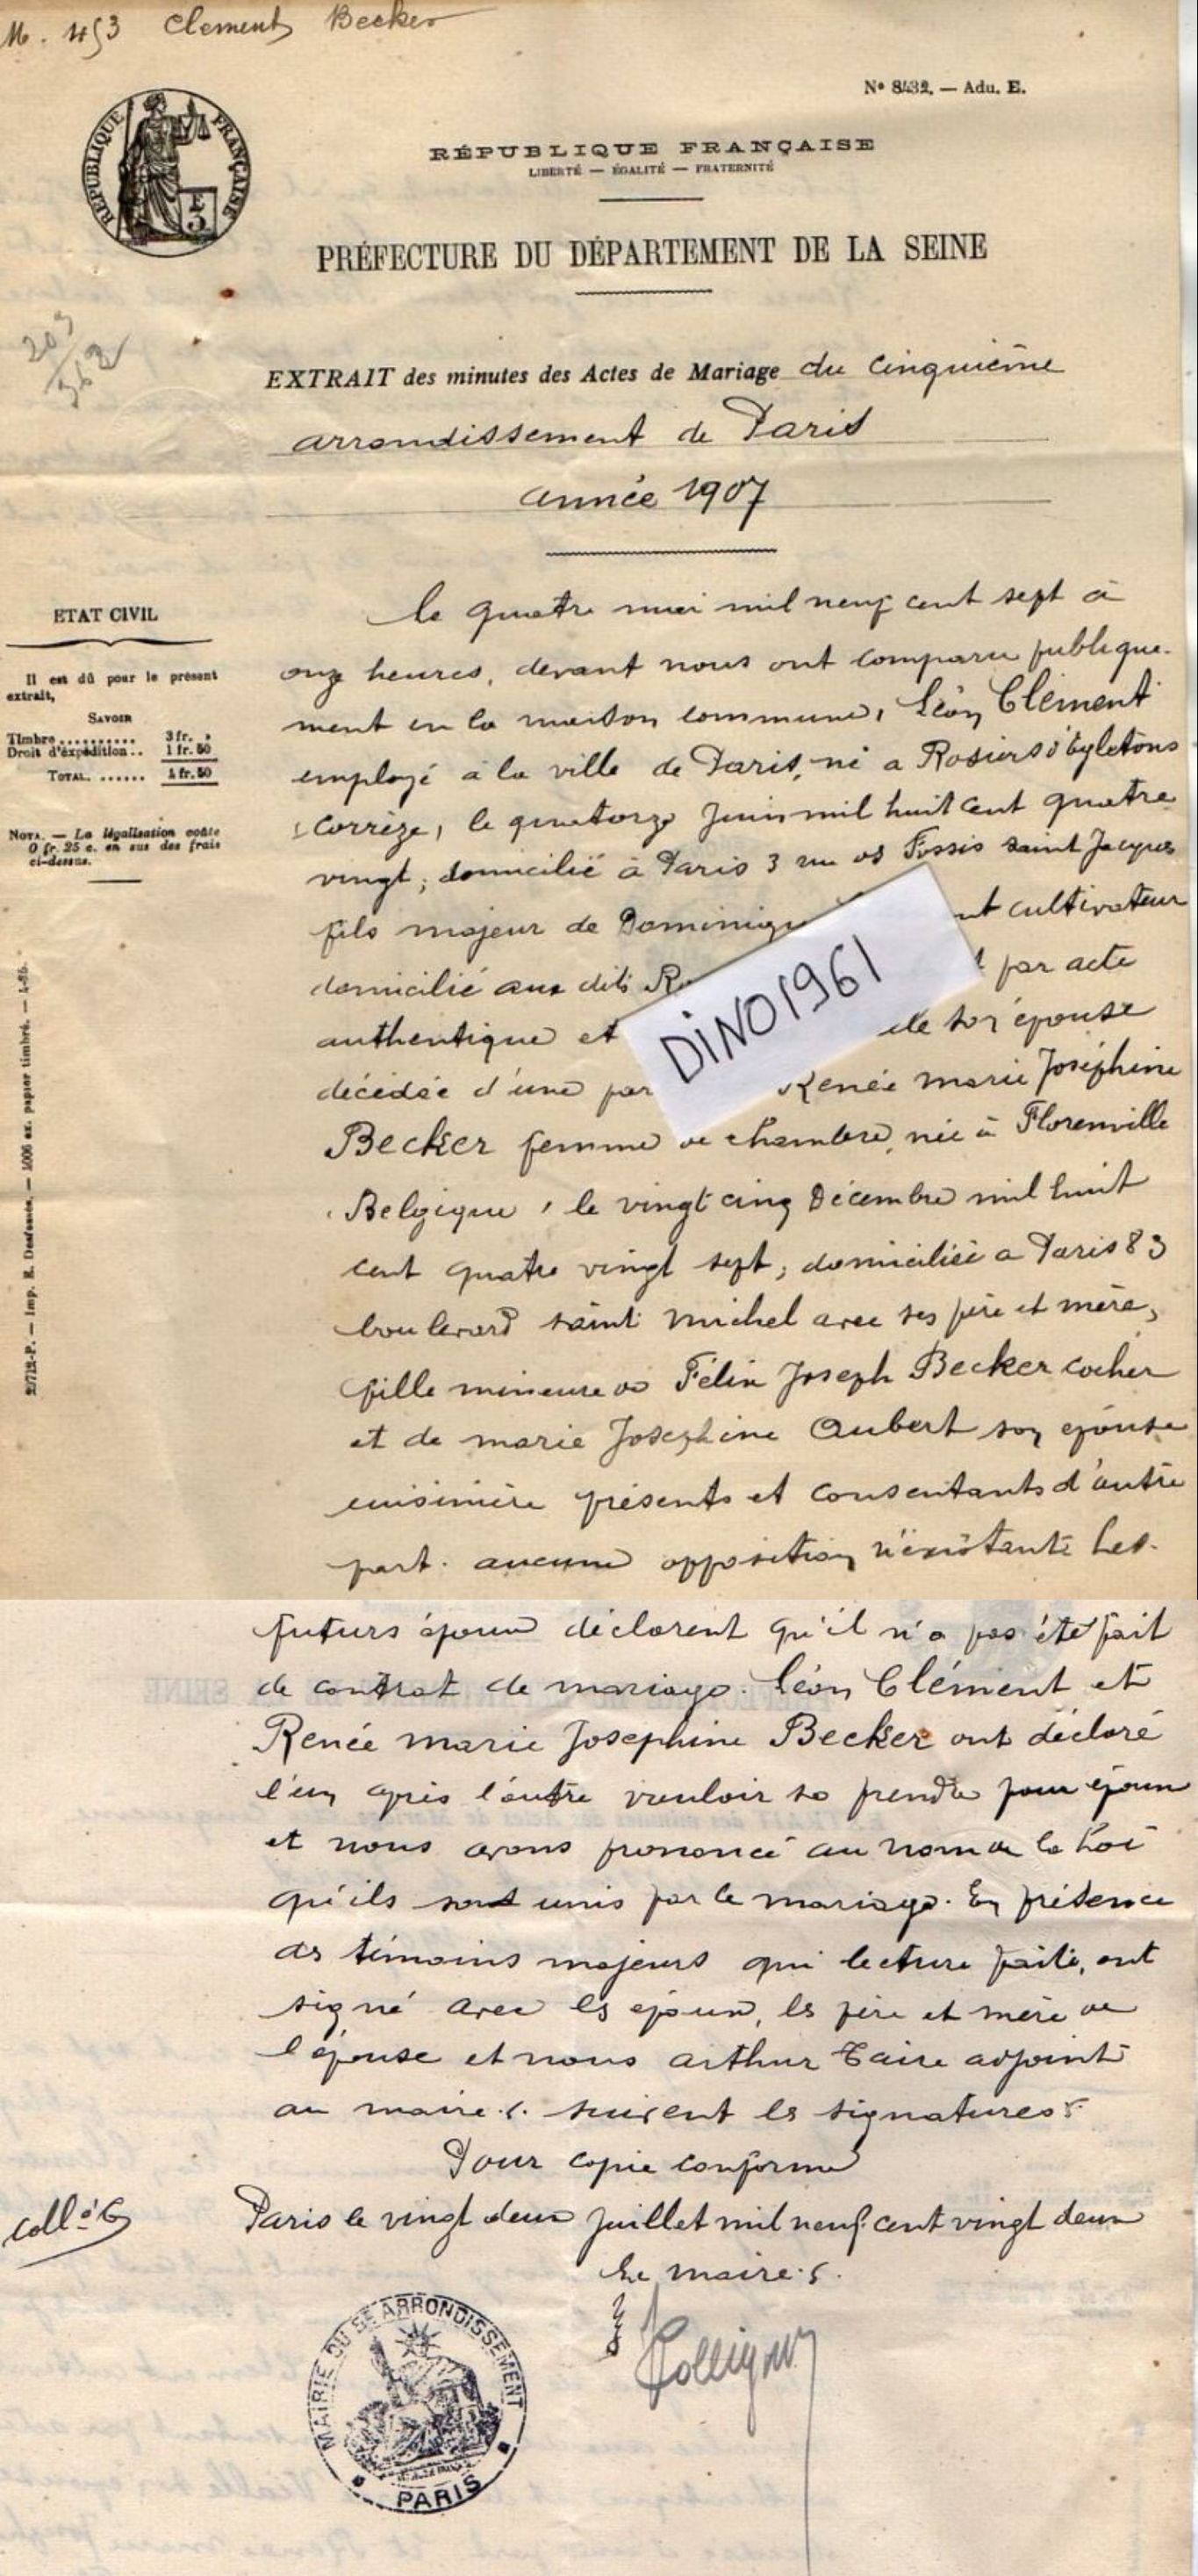 M. 453 Clement Becker
Nº 8432. — Adu. E.
RÉPUBLIQUE FRANÇAISE
E
3
RÉPUBLIQUE FRANÇAISE
LIBERTÉ — ÉGALITÉ — FRATERNITÉ
PRÉFECTURE DU DÉPARTEMENT DE LA SEINE
EXTRAIT des minutes des Actes de Mariage du cinquième
arrondissement de Paris
année 1907
ETAT CIVIL
Il est dû pour le présent
extrait,
SAVOIR
Timbre .......... 3 fr. »
Droit d'expédition .. 1 fr. 50
TOTAL ...... 4 fr. 50
NOTA. — La légalisation coûte
0 fr. 25 c. en sus des frais
ci-dessus.
le quatre mai mil neuf cent sept à
onze heures, devant nous ont comparu publique-
ment en la maison commune, Léon Clément
employé à la ville de Paris, né a Rosiers d'égletons
Corrèze, le quatorze Juin mil huit cent quatre
vingt, domicilié à Paris 3 rue des Fossés saint Jacques
fils majeur de Dominiqu nt cultivateur
domicilié aux dits Ro t par acte
authentique et de son épouse
décédée d'une par Renée marie Joséphine
Becker femme de chambre, née à Florenville
Belgique, le vingt cinq Décembre mil huit
cent quatre vingt sept, domiciliée a Paris 83
boulevard saint michel avec ses père et mère,
fille mineure de Félix Joseph Becker cocher
et de marie Josephine Aubert son épouse
cuisinière présents et consentants d'autre
part. aucune opposition n'existante Les
DINO1961
futurs époux déclarent qu'il n'a pas été fait
de contrat de mariage. Léon Clément et
Renée marie Josephine Becker ont déclaré
l'un après l'autre vouloir se prendre pour époux
et nous avons prononcé au nom de la Loi
qu'ils sont unis par le mariage. En présence
de témoins majeurs qui lecture faite, ont
signé avec les époux, les père et mère de
l'épouse et nous arthur adjoint
au maire. suivent les signatures
Pour copie conforme
Paris le vingt deux juillet mil neuf cent vingt deux
Le maire
MAIRIE DU 5E ARRONDISSEMENT
PARIS